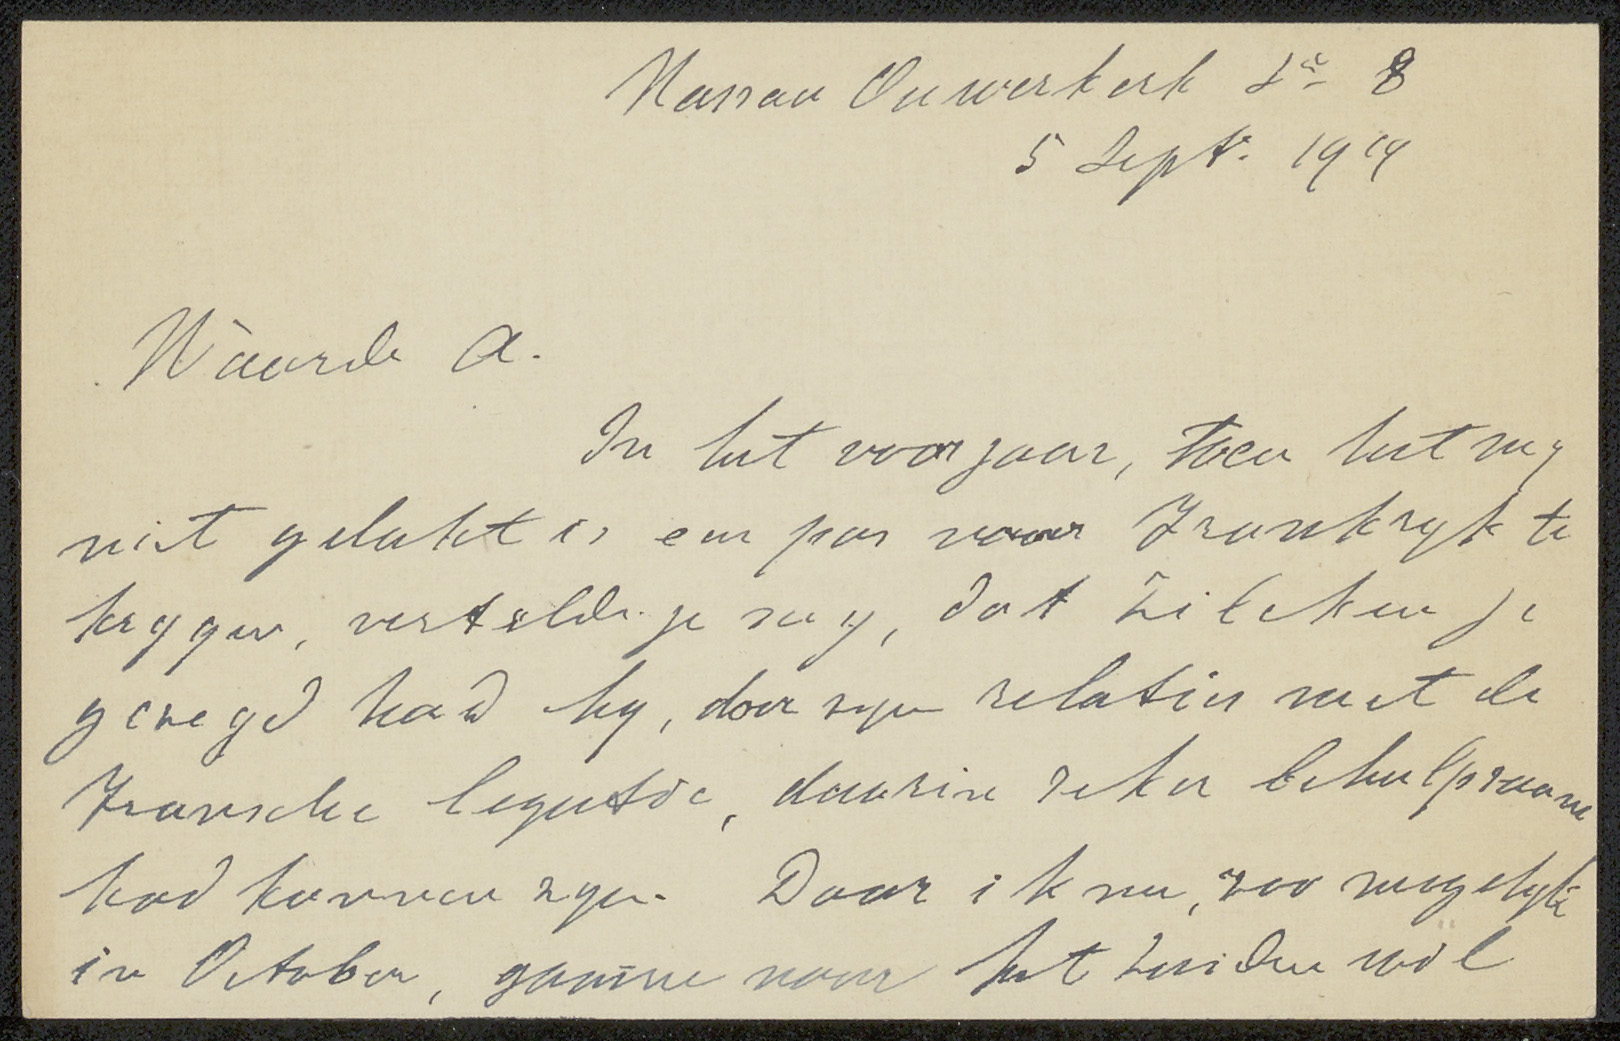 Nassau Ouwerkerk Str 8
5 Sept. 1919
Waarde A.
In het voorjaar, toen het my
niet gelukt is een pas naar Frankryk te
krygen, vertelde je my, dat Zilcken je
gezegd had hy, door zyn relaties met de
Fransche legatie, daarin zeker behulpzaam
had kunnen zyn. Daar ik nu, zoo mogelyk
in October, gaarne naar het Zuiden wil